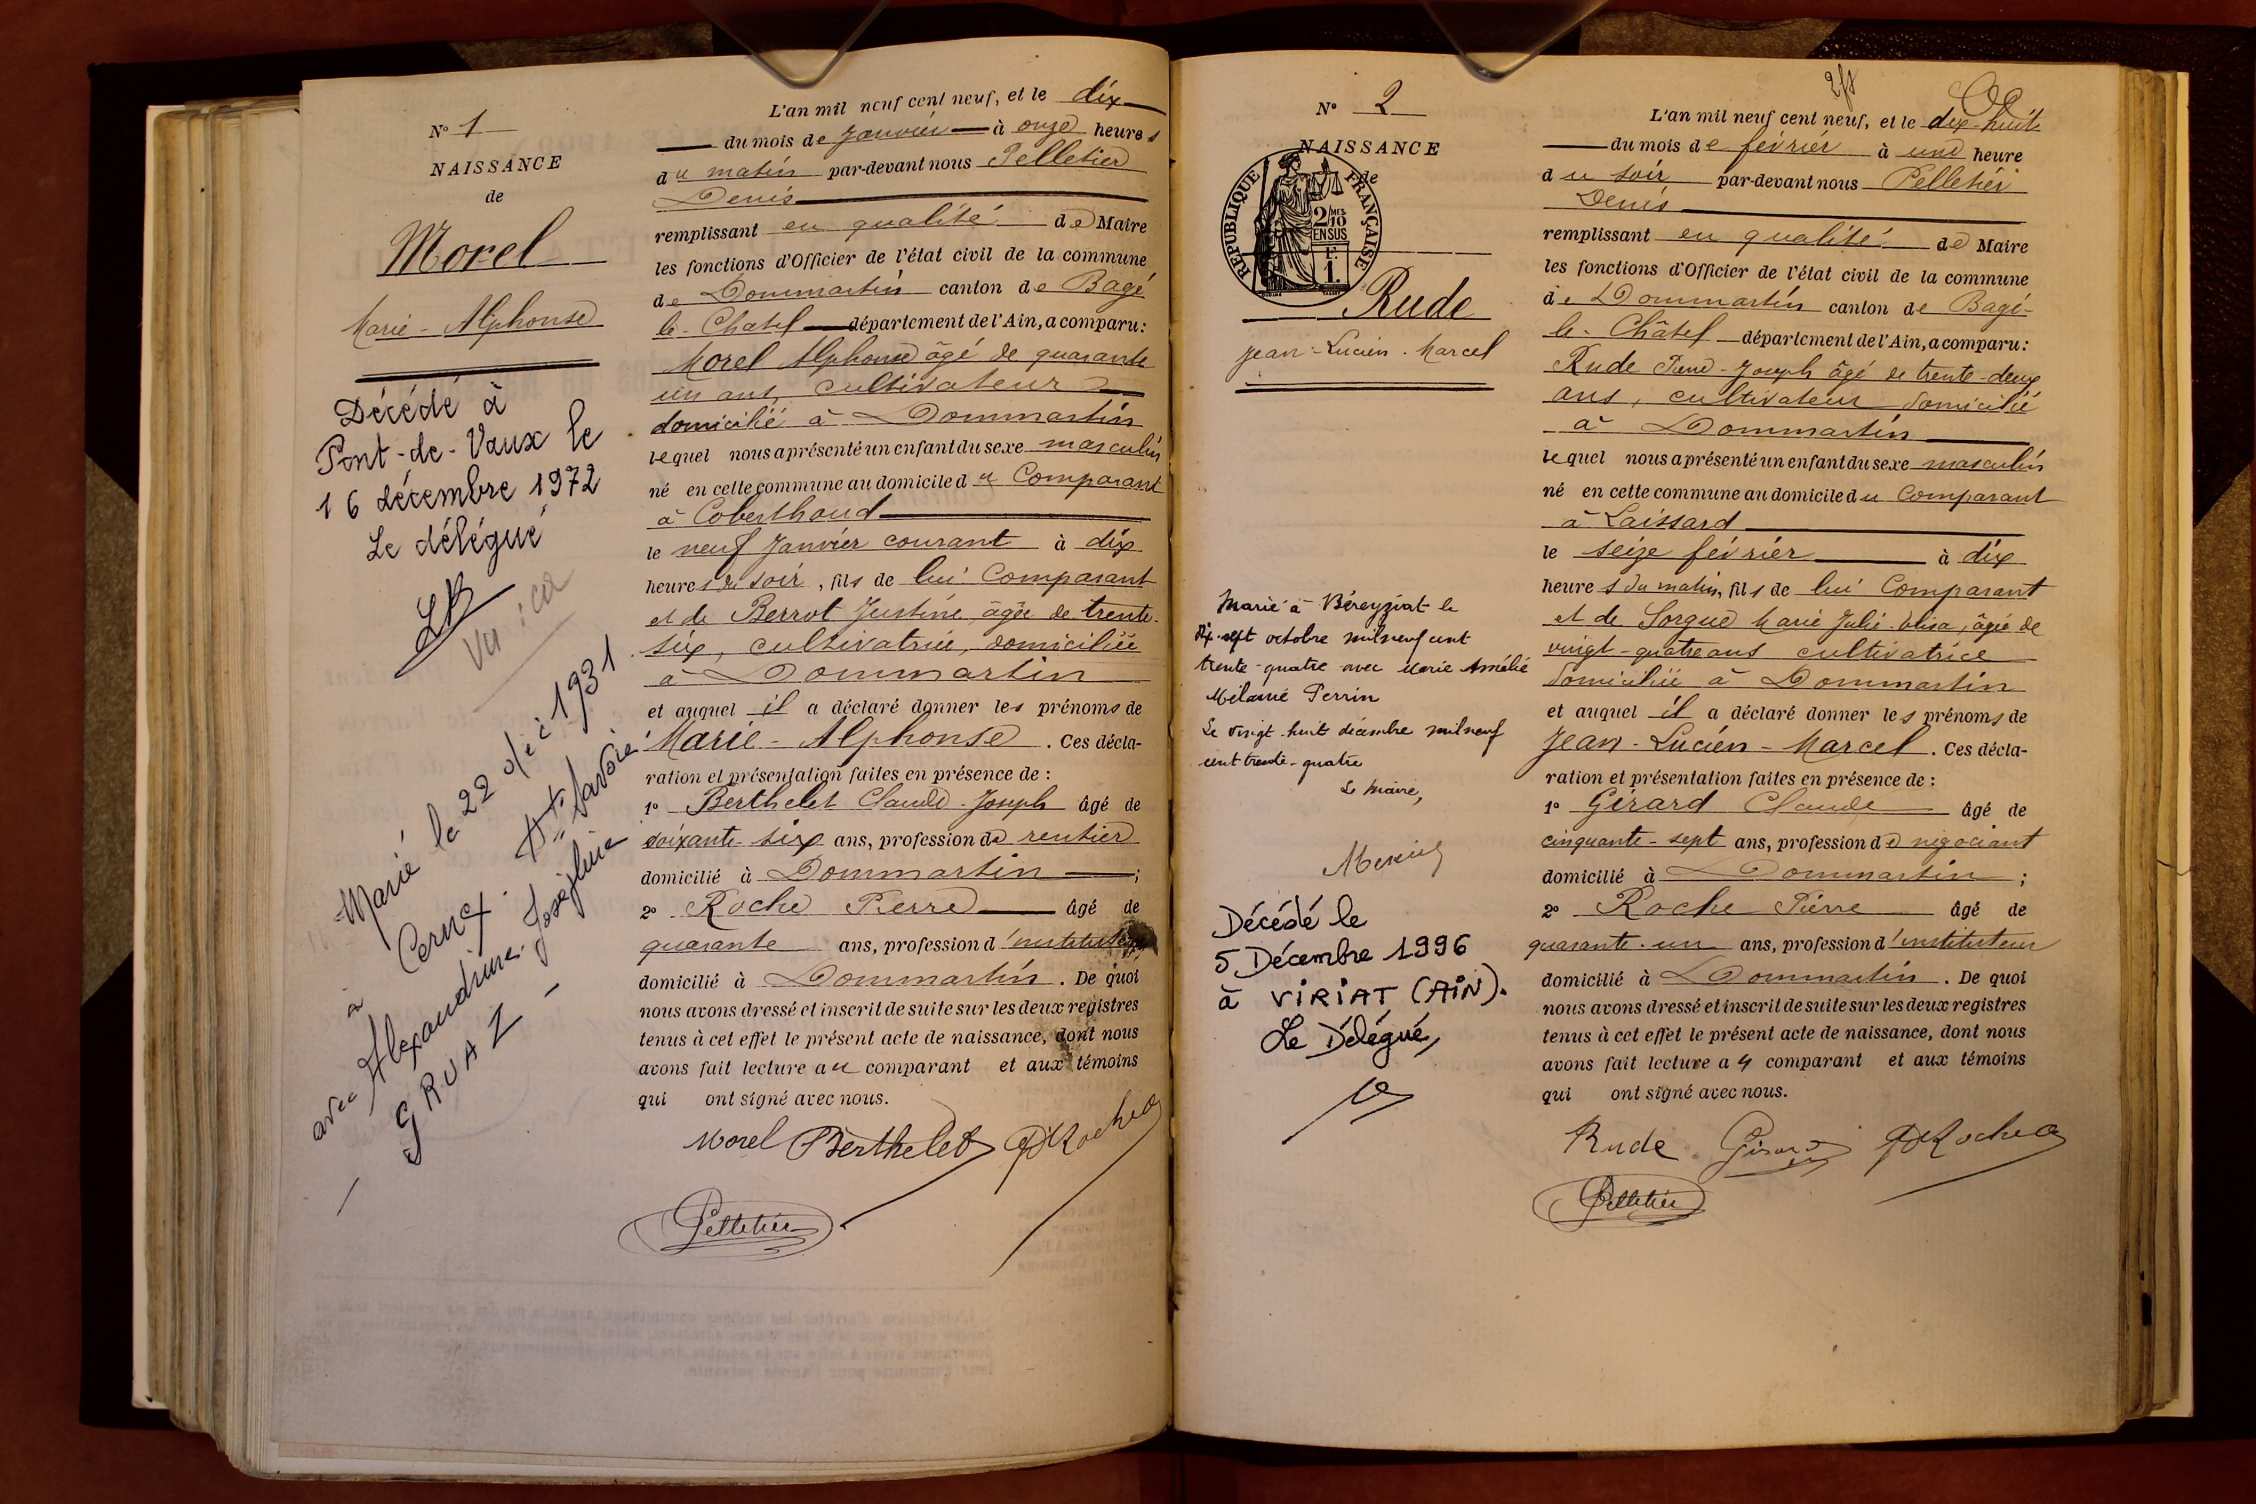 N° 1
NAISSANCE
de
Morel
Marie - Alphonse
Décédé à
Pont-de-Vaux le
16 décembre 1972
Le délégué
Marié le 22 déc 1931
à Cernex. Hte Savoie
avec Alexandrine Joséphine
GRUAZ
L'an mil neuf cent neuf, et le dix
du mois de Janvier à onze heures
du matin par-devant nous Pelletier
Denis
remplissant en qualité de Maire
les fonctions d'Officier de l'état civil de la commune
de Dommartin canton de Bagé
le-Chatel département de l'Ain, a comparu :
Morel Alphonse âgé de quarante
un ans, cultivateur
domicilié à Dommartin
lequel nous a présenté un enfant du sexe masculin
né en cette commune au domicile du Comparant
à Coberthoud
le neuf Janvier courant à dix
heures du soir, fils de lui Comparant
et de Berrot Justine, âgée de trente-
six, cultivatrice, domiciliée
à Dommartin
et auquel il a déclaré donner les prénoms de
Marie - Alphonse. Ces décla-
ration et présentation faites en présence de :
1° Berthelet Claude-Joseph âgé de
soixante-six ans, profession de rentier
domicilié à Dommartin ;
2° Roche Pierre âgé de
quarante ans, profession d'instituteur
domicilié à Dommartin. De quoi
nous avons dressé et inscrit de suite sur les deux registres
tenus à cet effet le présent acte de naissance, dont nous
avons fait lecture au comparant et aux témoins
qui ont signé avec nous.
Morel Berthelet Roche
Pelletier
N° 2
NAISSANCE
de
RÉPUBLIQUE FRANÇAISE
2/10 MES
EN SUS
1F.
Rude
Jean-Lucien-Marcel
Marié à Béreyziat le
dix-sept octobre mil neuf cent
trente-quatre avec Marie Amélie
Mélanie Perrin
Le vingt-huit décembre mil neuf
cent trente-quatre
Le Maire,
Décédé le
5 Décembre 1996
à VIRIAT (AIN).
Le Délégué,
L'an mil neuf cent neuf, et le dix-huit
du mois de février à une heure
du soir par-devant nous Pelletier
Denis
remplissant en qualité de Maire
les fonctions d'Officier de l'état civil de la commune
de Dommartin canton de Bagé-
le-Châtel département de l'Ain, a comparu :
Rude Pierre-Joseph âgé de trente-deux
ans, cultivateur domicilié
à Dommartin
lequel nous a présenté un enfant du sexe masculin
né en cette commune au domicile du Comparant
à Laissard
le seize février à dix
heures du matin, fils de lui Comparant
et de Sorgue Marie Julie-Elisa, âgée de
vingt-quatre ans cultivatrice
domiciliée à Dommartin
et auquel il a déclaré donner les prénoms de
Jean-Lucien-Marcel. Ces décla-
ration et présentation faites en présence de :
1° Gérard Claude âgé de
cinquante-sept ans, profession de négociant
domicilié à Dommartin ;
2° Roche Pierre âgé de
quarante-un ans, profession d'instituteur
domicilié à Dommartin. De quoi
nous avons dressé et inscrit de suite sur les deux registres
tenus à cet effet le présent acte de naissance, dont nous
avons fait lecture au comparant et aux témoins
qui ont signé avec nous.
Rude Girard Roche
Pelletier